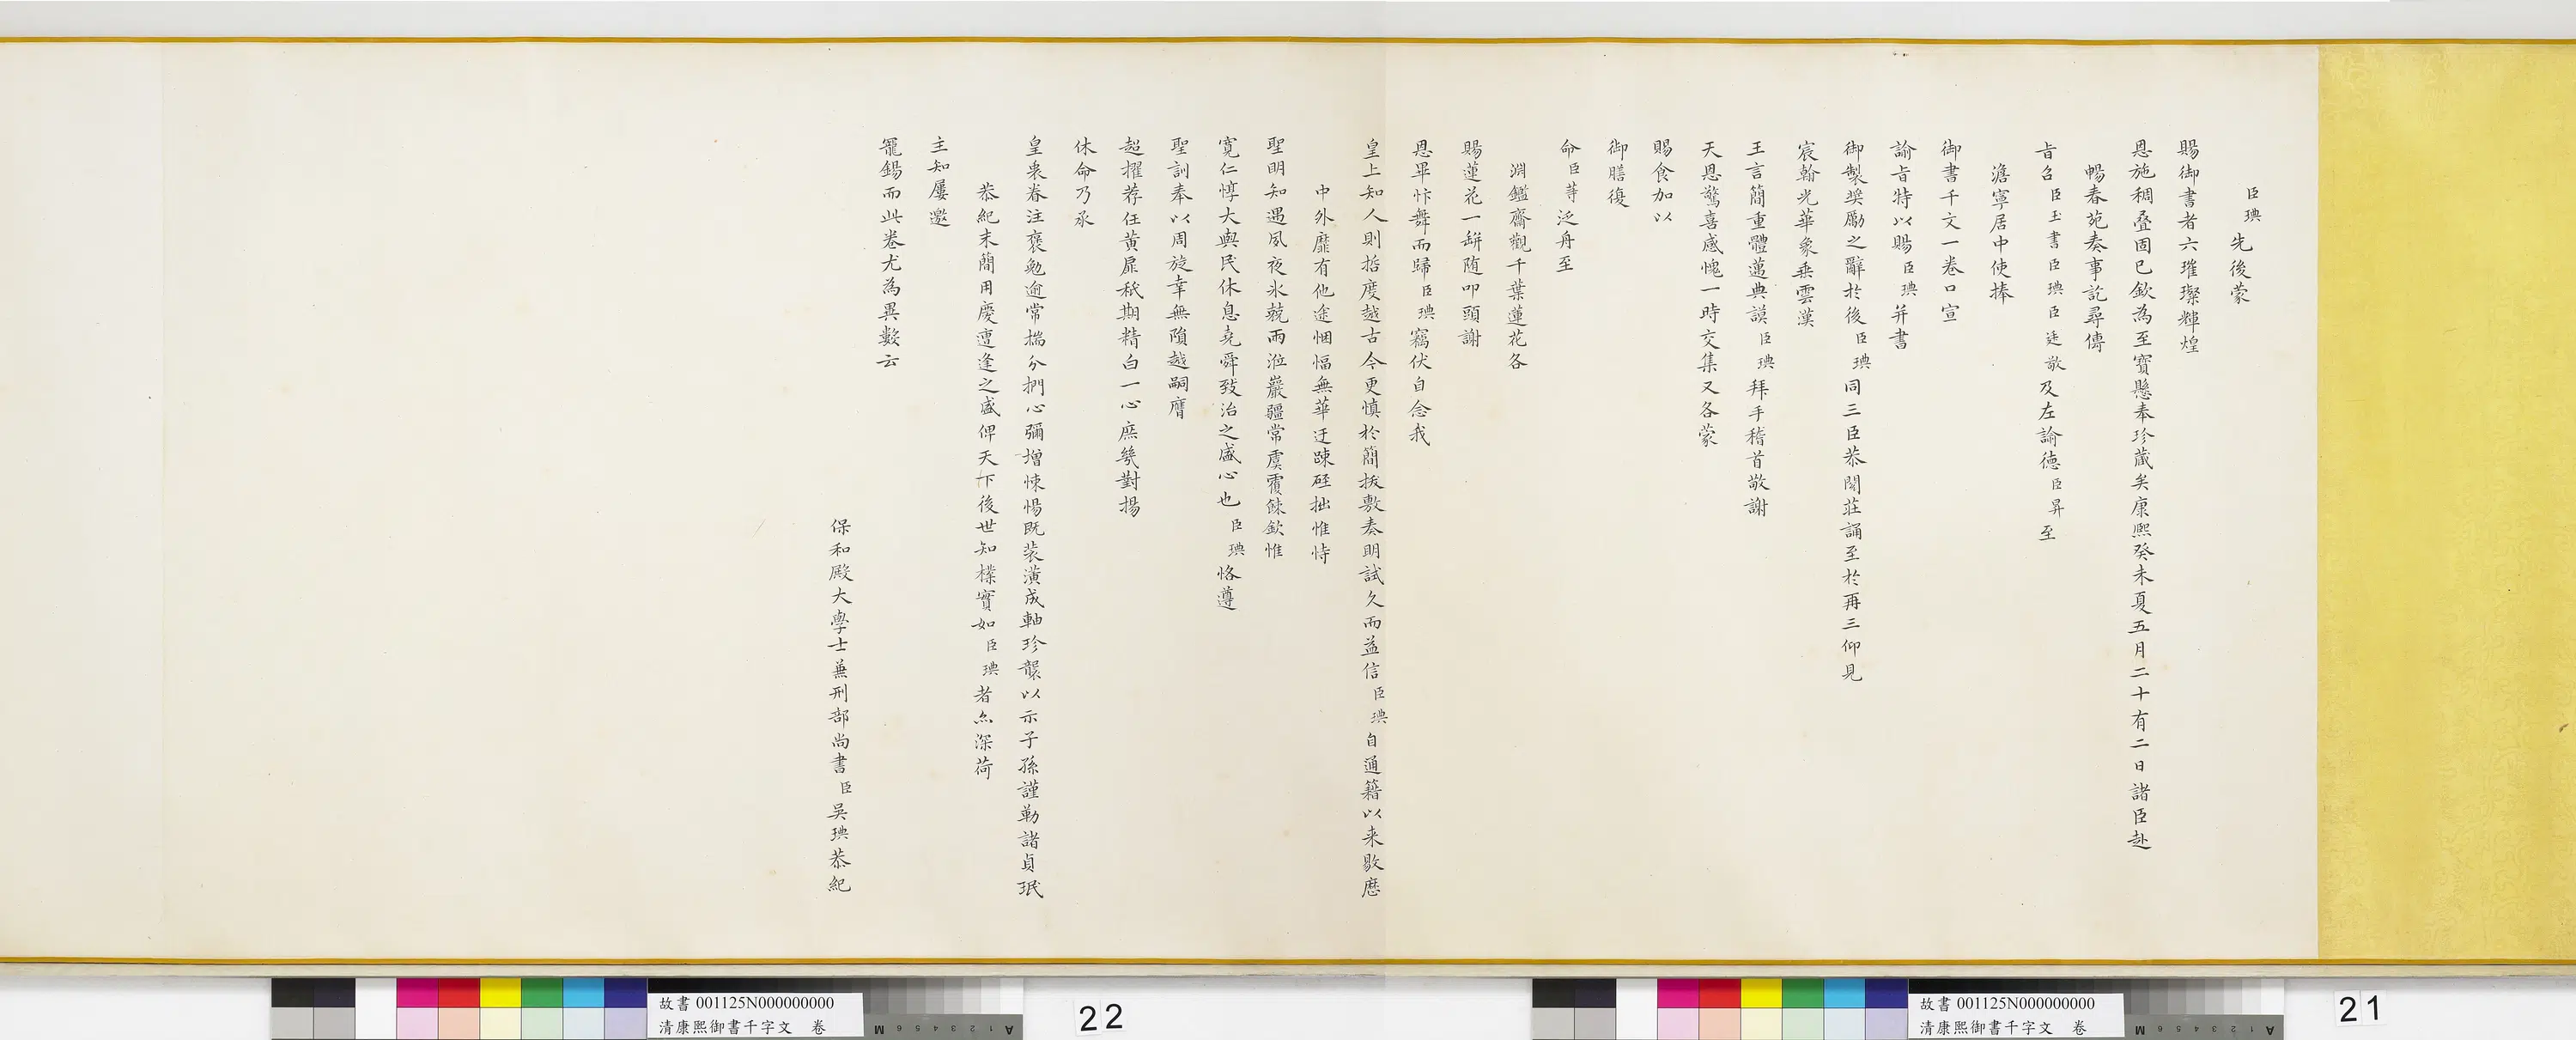 臣琠先後蒙
賜御書者六璀璨輝煌
恩施稠疊固已欽為至寶懸奉珍藏矣康熙癸未夏五月二十有二日諸臣赴
暢春苑奏事訖尋傳
旨召臣玉書臣琠臣廷敬及左諭德臣昇至
澹寧居中使捧
御書千文一卷口宣
諭旨特以賜臣琠并書
御製奬勵之辭於後臣琠同三臣恭閱莊誦至於再三仰見
宸翰光華象垂雲漢
王言簡重體邁典謨臣琠拜手稽首敬謝
天恩驚喜感愧一時交集又各蒙
賜食加以
御膳復
命臣等泛舟至
淵鑑齋觀千葉蓮花各
賜蓮花一缾随叩頭謝
恩畢忭舞而歸臣琠竊伏自念我
皇上知人則哲度越古今更慎於簡拔敷奏明試久而益信臣琠自通籍以来敭歷
中外靡有他途悃愊無華迂踈硜拙惟恃
聖明知遇夙夜氷兢兩涖巖疆常虞覆餗欽惟
寬仁惇大與民休息堯舜致治之盛心也臣琠恪遵
聖訓奉以周旋幸無隕越嗣膺
超擢荐任黃扉秪期精白一心庶幾對揚
休命乃承
皇衷眷注褒勉逾常揣分捫心彌增悚惕既裝潢成軸珍襲以示子孫謹勒諸貞珉
恭紀末簡用慶遭逢之盛俾天下後世知樸實如臣琠者亦深荷
主知屢邀
寵錫而此卷尤為異數云
保和殿大學士兼刑部尚書臣吳琠恭紀
故書 001125N000000000
清康熙御書千字文 卷
21
故書 001125N000000000
清康熙御書千字文 卷
22